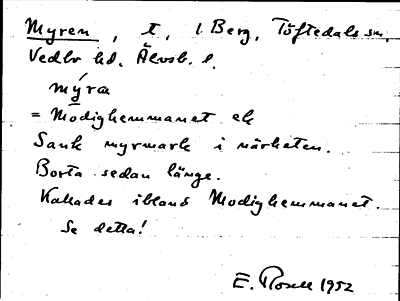 Myren, t, i Berg, Töftedals sn.
Vedbo hd. Älvsb. l.
mýra
= Modighemmanet ek
Sank myrmark i närheten.
Borta sedan länge.
Kallades ibland Modighemmanet.
Se detta!
E. Rosell 1952